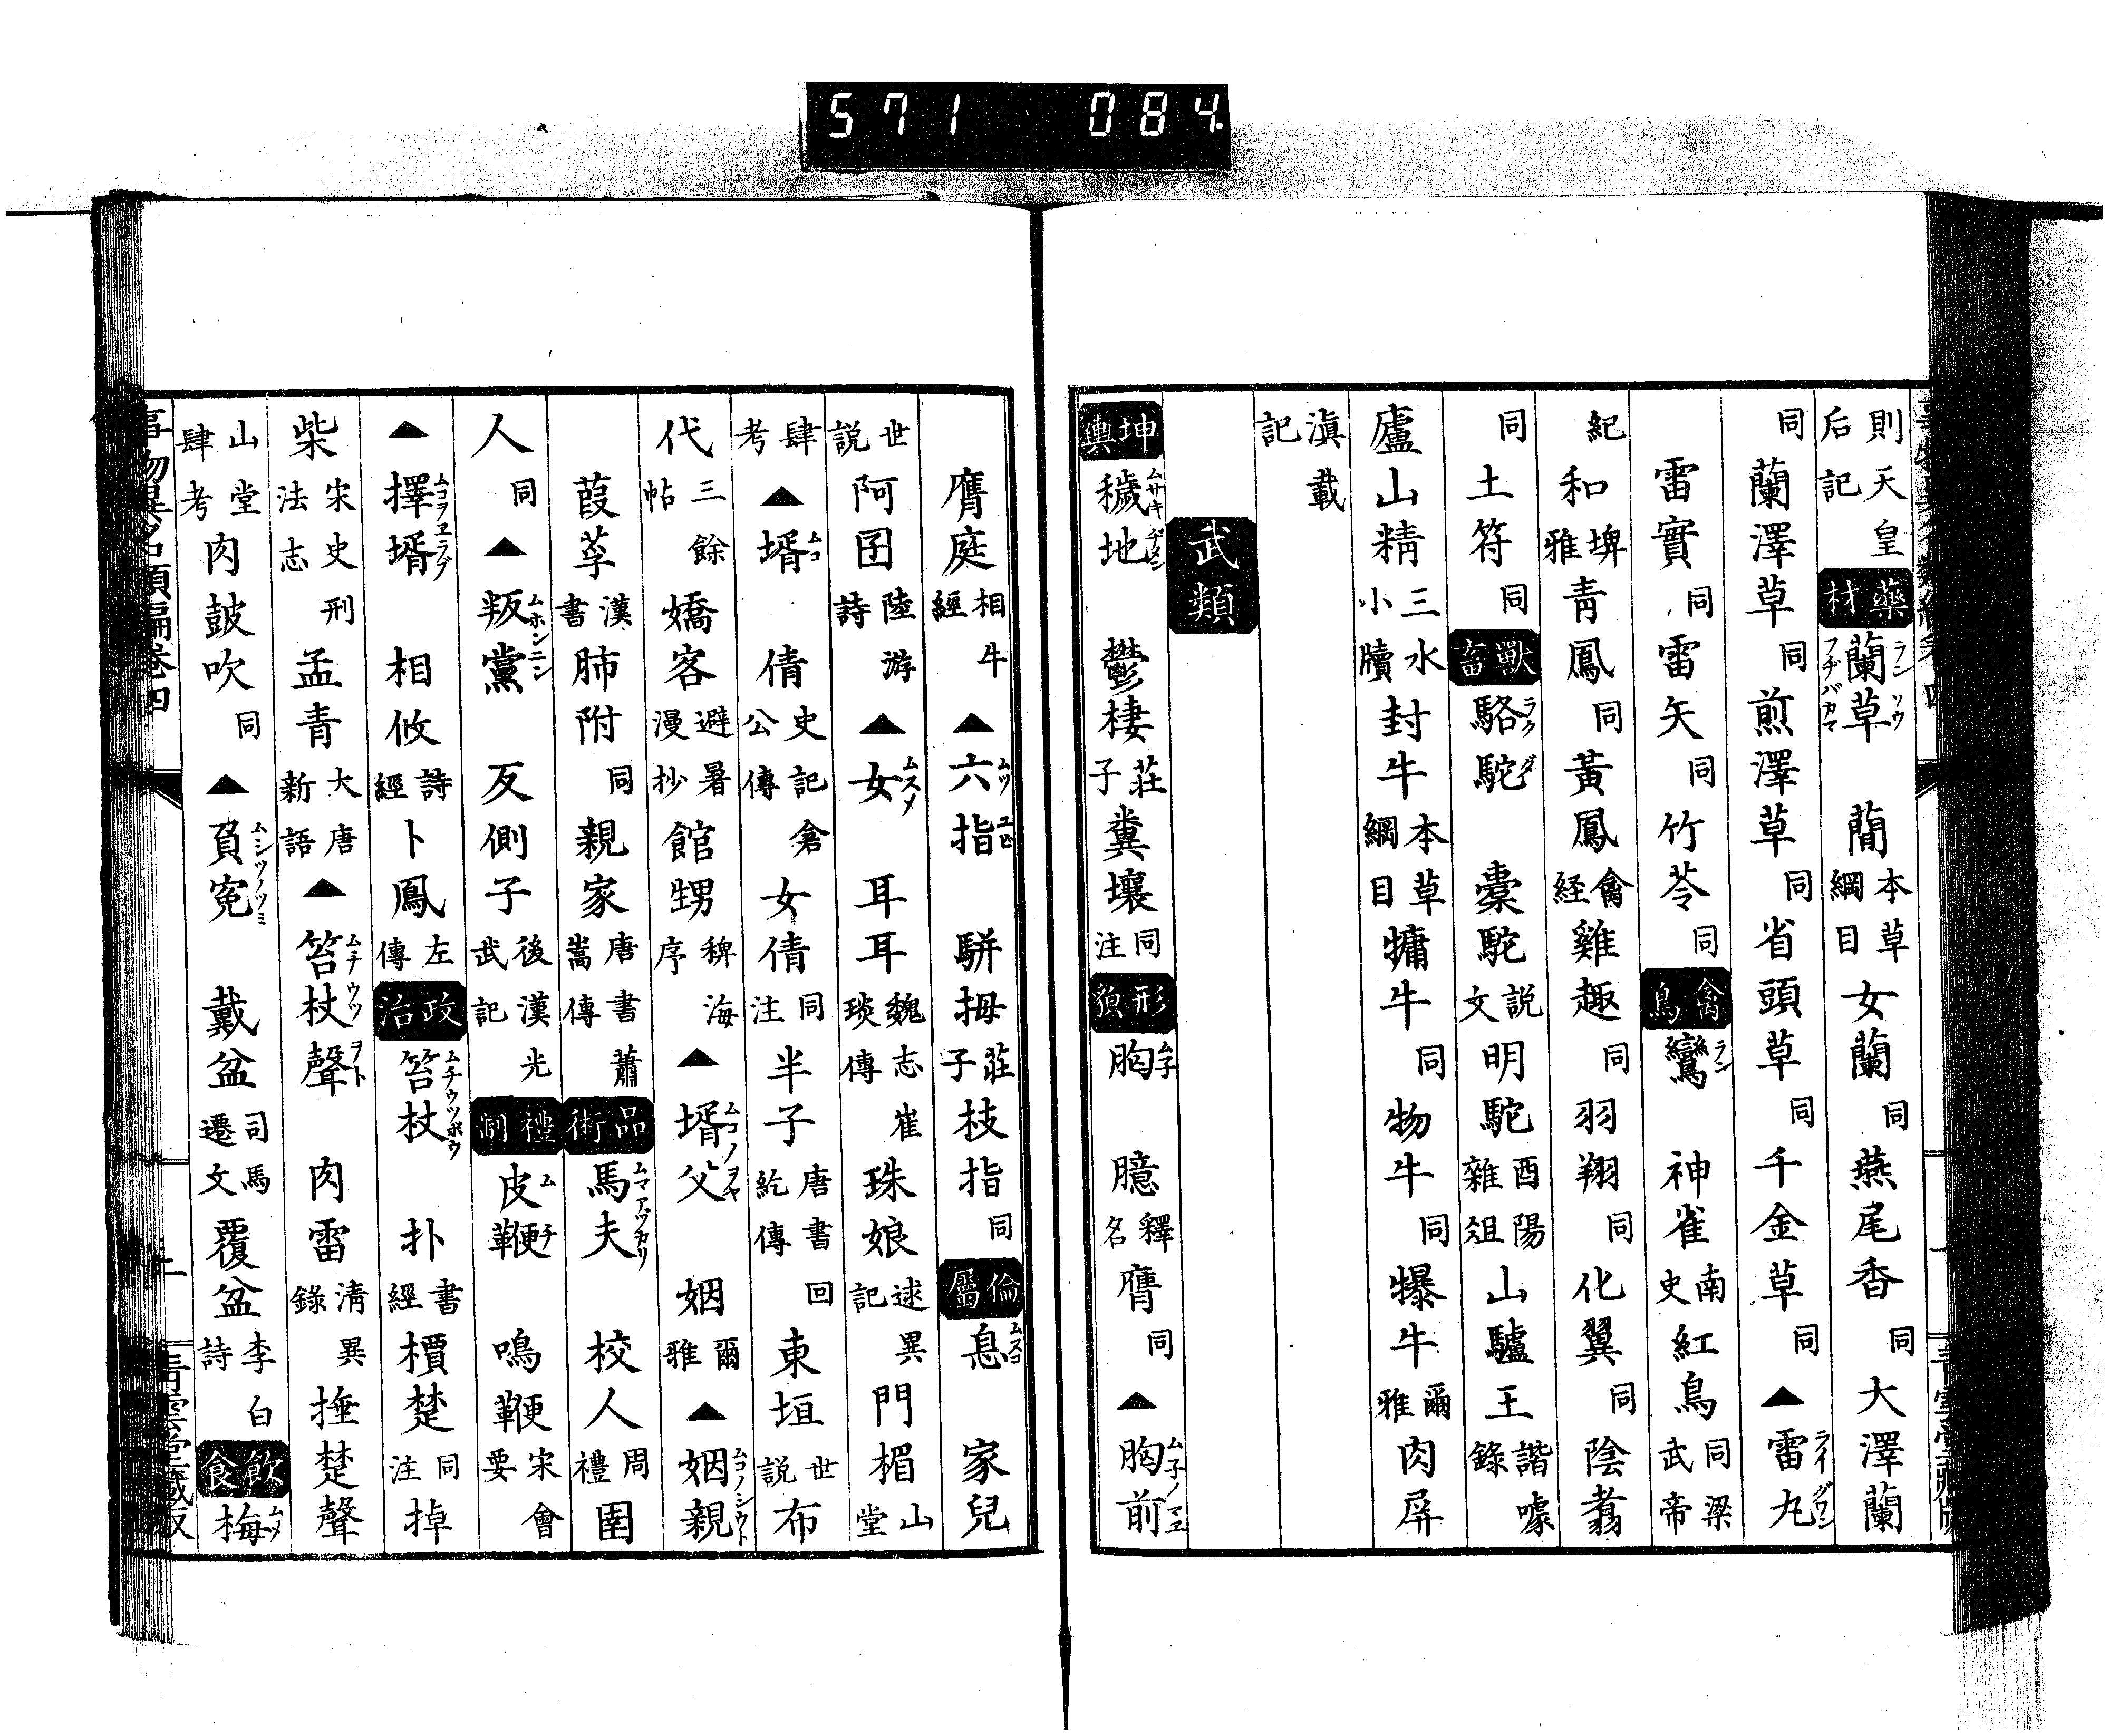 571 084
則天皇后記 藥材 蘭草ランソウフヂバカマ 蕑本草綱目 女蘭同 燕尾香同 大澤蘭
同 蘭澤草同 煎澤草同 省頭草同 千金草同 ▲雷丸ライグワン
雷實同 雷矢同 竹苓同 禽鳥 鸞ラン 神雀南史 紅鳥同梁武帝
紀 和雅埤 青鳳同 黃鳳禽経 雞趣同 羽翔同 化翼同 陰翥
同 土符同 獸畜 駱駝ラクダ 橐駝說文 明駝酉陽雜俎 山驢王諧噱錄
廬山精三水小牘 封牛本草綱目 犏牛同 物牛同 犦牛爾雅 肉屏
滇載記
武類
坤輿 穢地ムサキヂメン 鬱棲莊子 糞壤同注 形貌 胸ムネ 臆釋名 膺同 ▲胸前ム子ノマヱ
膺庭相牛經 ▲六指ムツユビ 駢拇莊子 枝指同 倫屬 息ムスコ 家兒
世說 阿囝陸游詩 ▲女ムスメ 耳耳魏志崔琰傳 珠娘述異記 門楣山堂
肆考 ▲壻ムコ 倩史記倉公傳 女倩同注 半子唐書回紇傳 東垣世說 布
代三餘帖 嬌客避暑漫抄 館甥稗海序 ▲壻父ムコノヲヤ 姻爾雅 ▲姻親ムコノシウト
葭莩漢書 肺附同 親家唐書蕭嵩傳 品術 馬夫ムマアヅカリ 校人周禮 圉
人同 ▲叛黨ムホンニン 反側子後漢光武記 禮制 皮鞭ムチ 鳴鞭宋會要
▲擇壻ムコヲヱラブ 相攸詩經 卜鳳左傳 政治 笞杖ムチウツボウ 扑書經 檟楚同注 掉
柴宋史刑法志 孟青大唐新語 ▲笞杖聲ムチウツヲト 肉雷清異錄 捶楚聲
山堂肆考 肉鼓吹同 ▲負寃ムシツノツミ 戴盆司馬遷文 覆盆李白詩 飲食 梅ムメ
事物異名類編卷四 二 青雲堂藏版